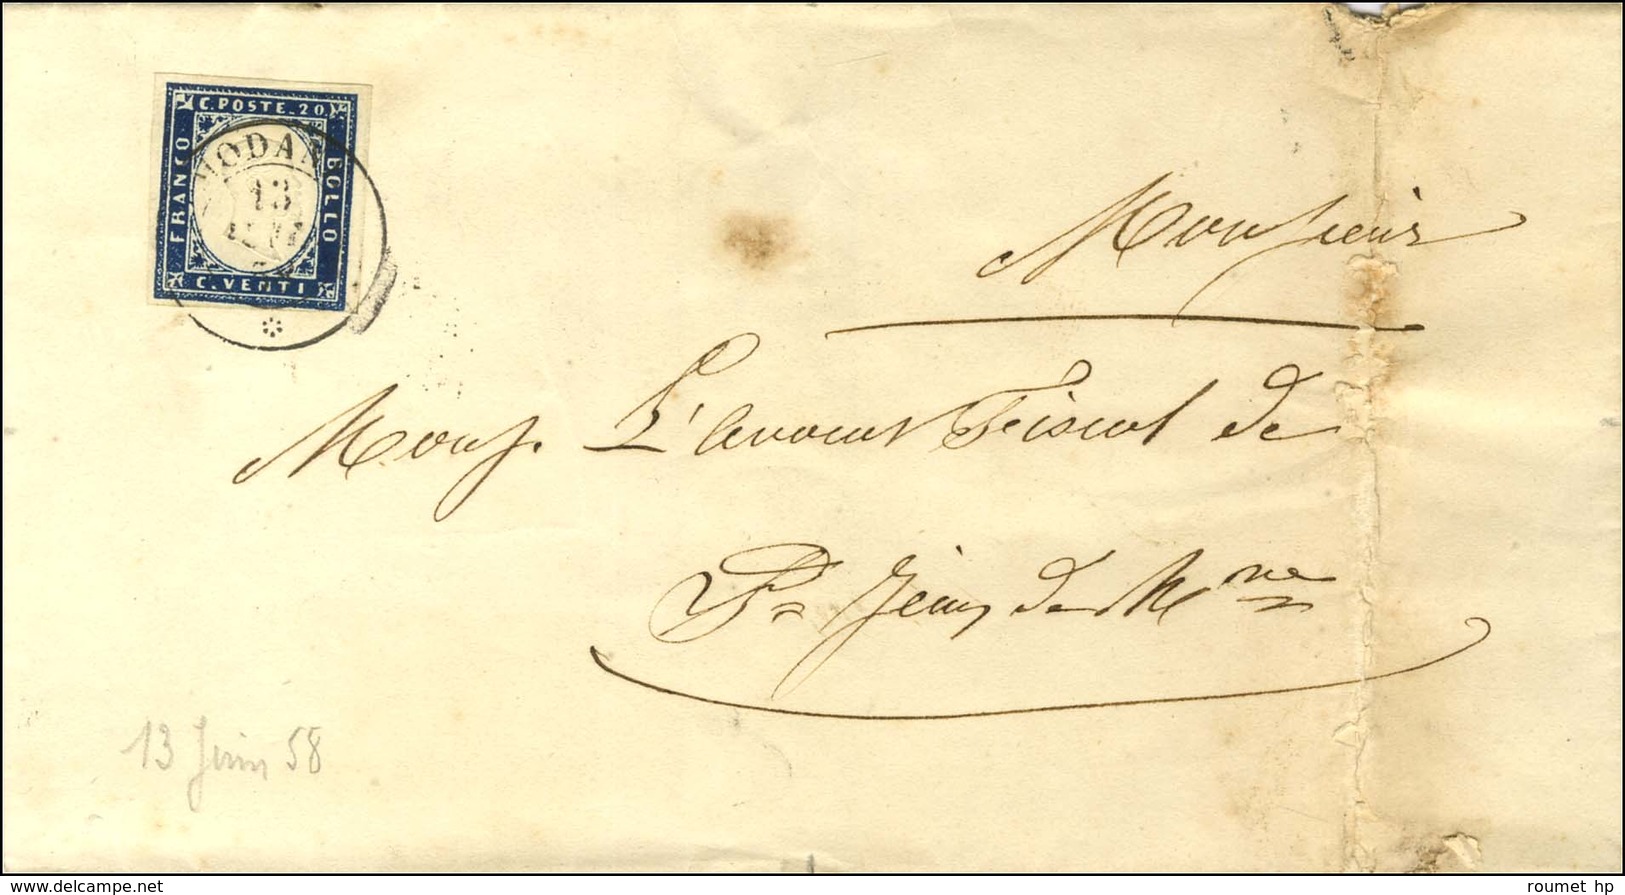 C. POSTE. 20.
FRANCO
BOLLO
C. VENTI
MODAN
13
Monsieur
Mons. L'avocat Fiscal de
St Jean de Mne
13 Juin 58
www.delcampe.net
roumet hp